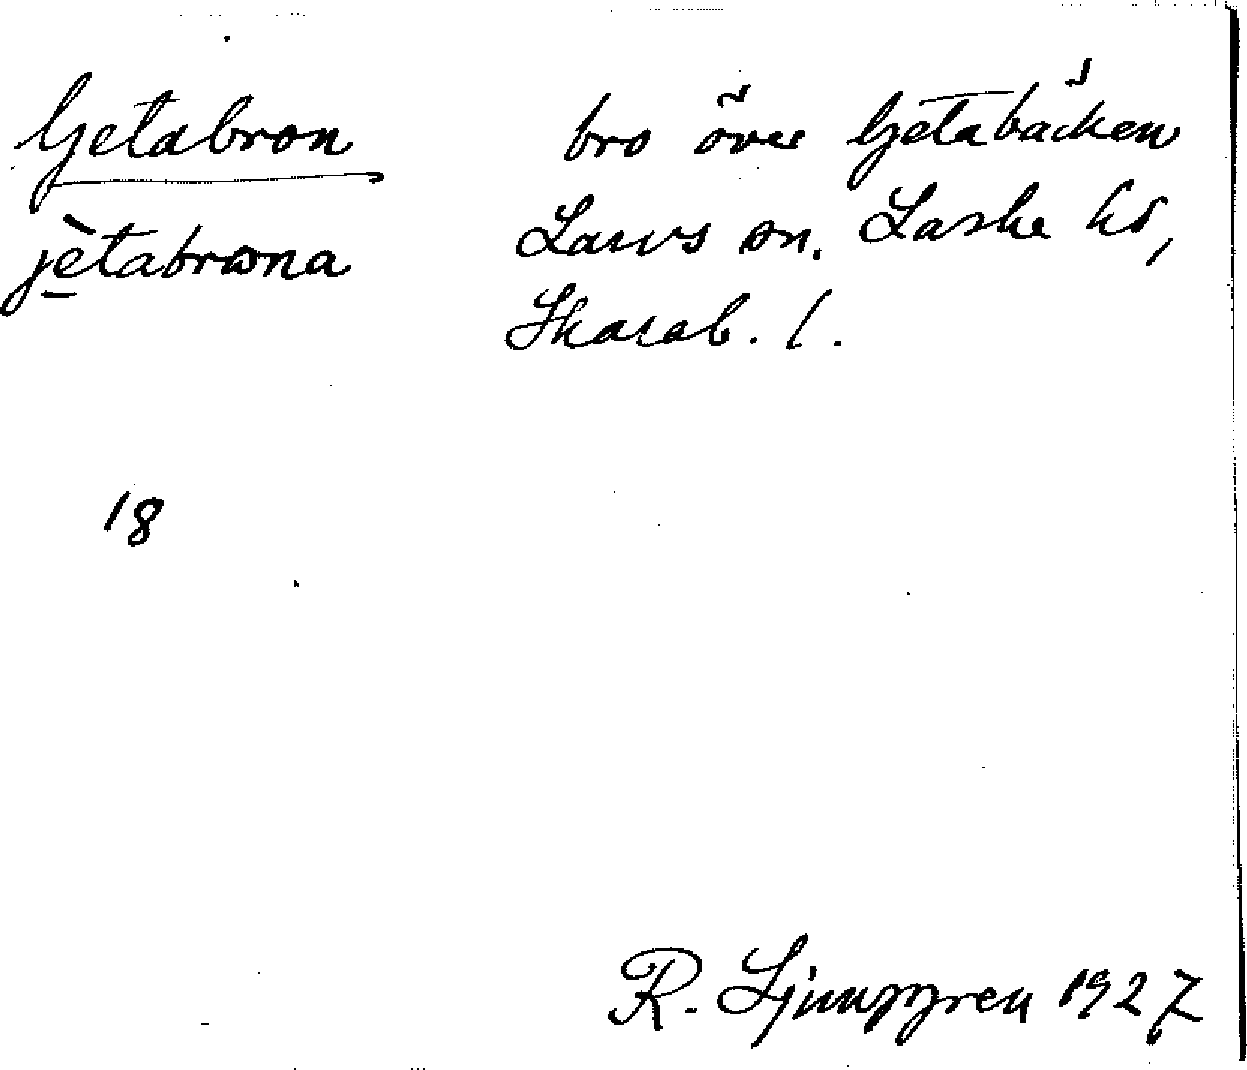 Getabron
jètabrωna
bro över Getabäcken
Larvs sn. Laske hd,
Skarab. l.
18
R. Ljunggren 1927